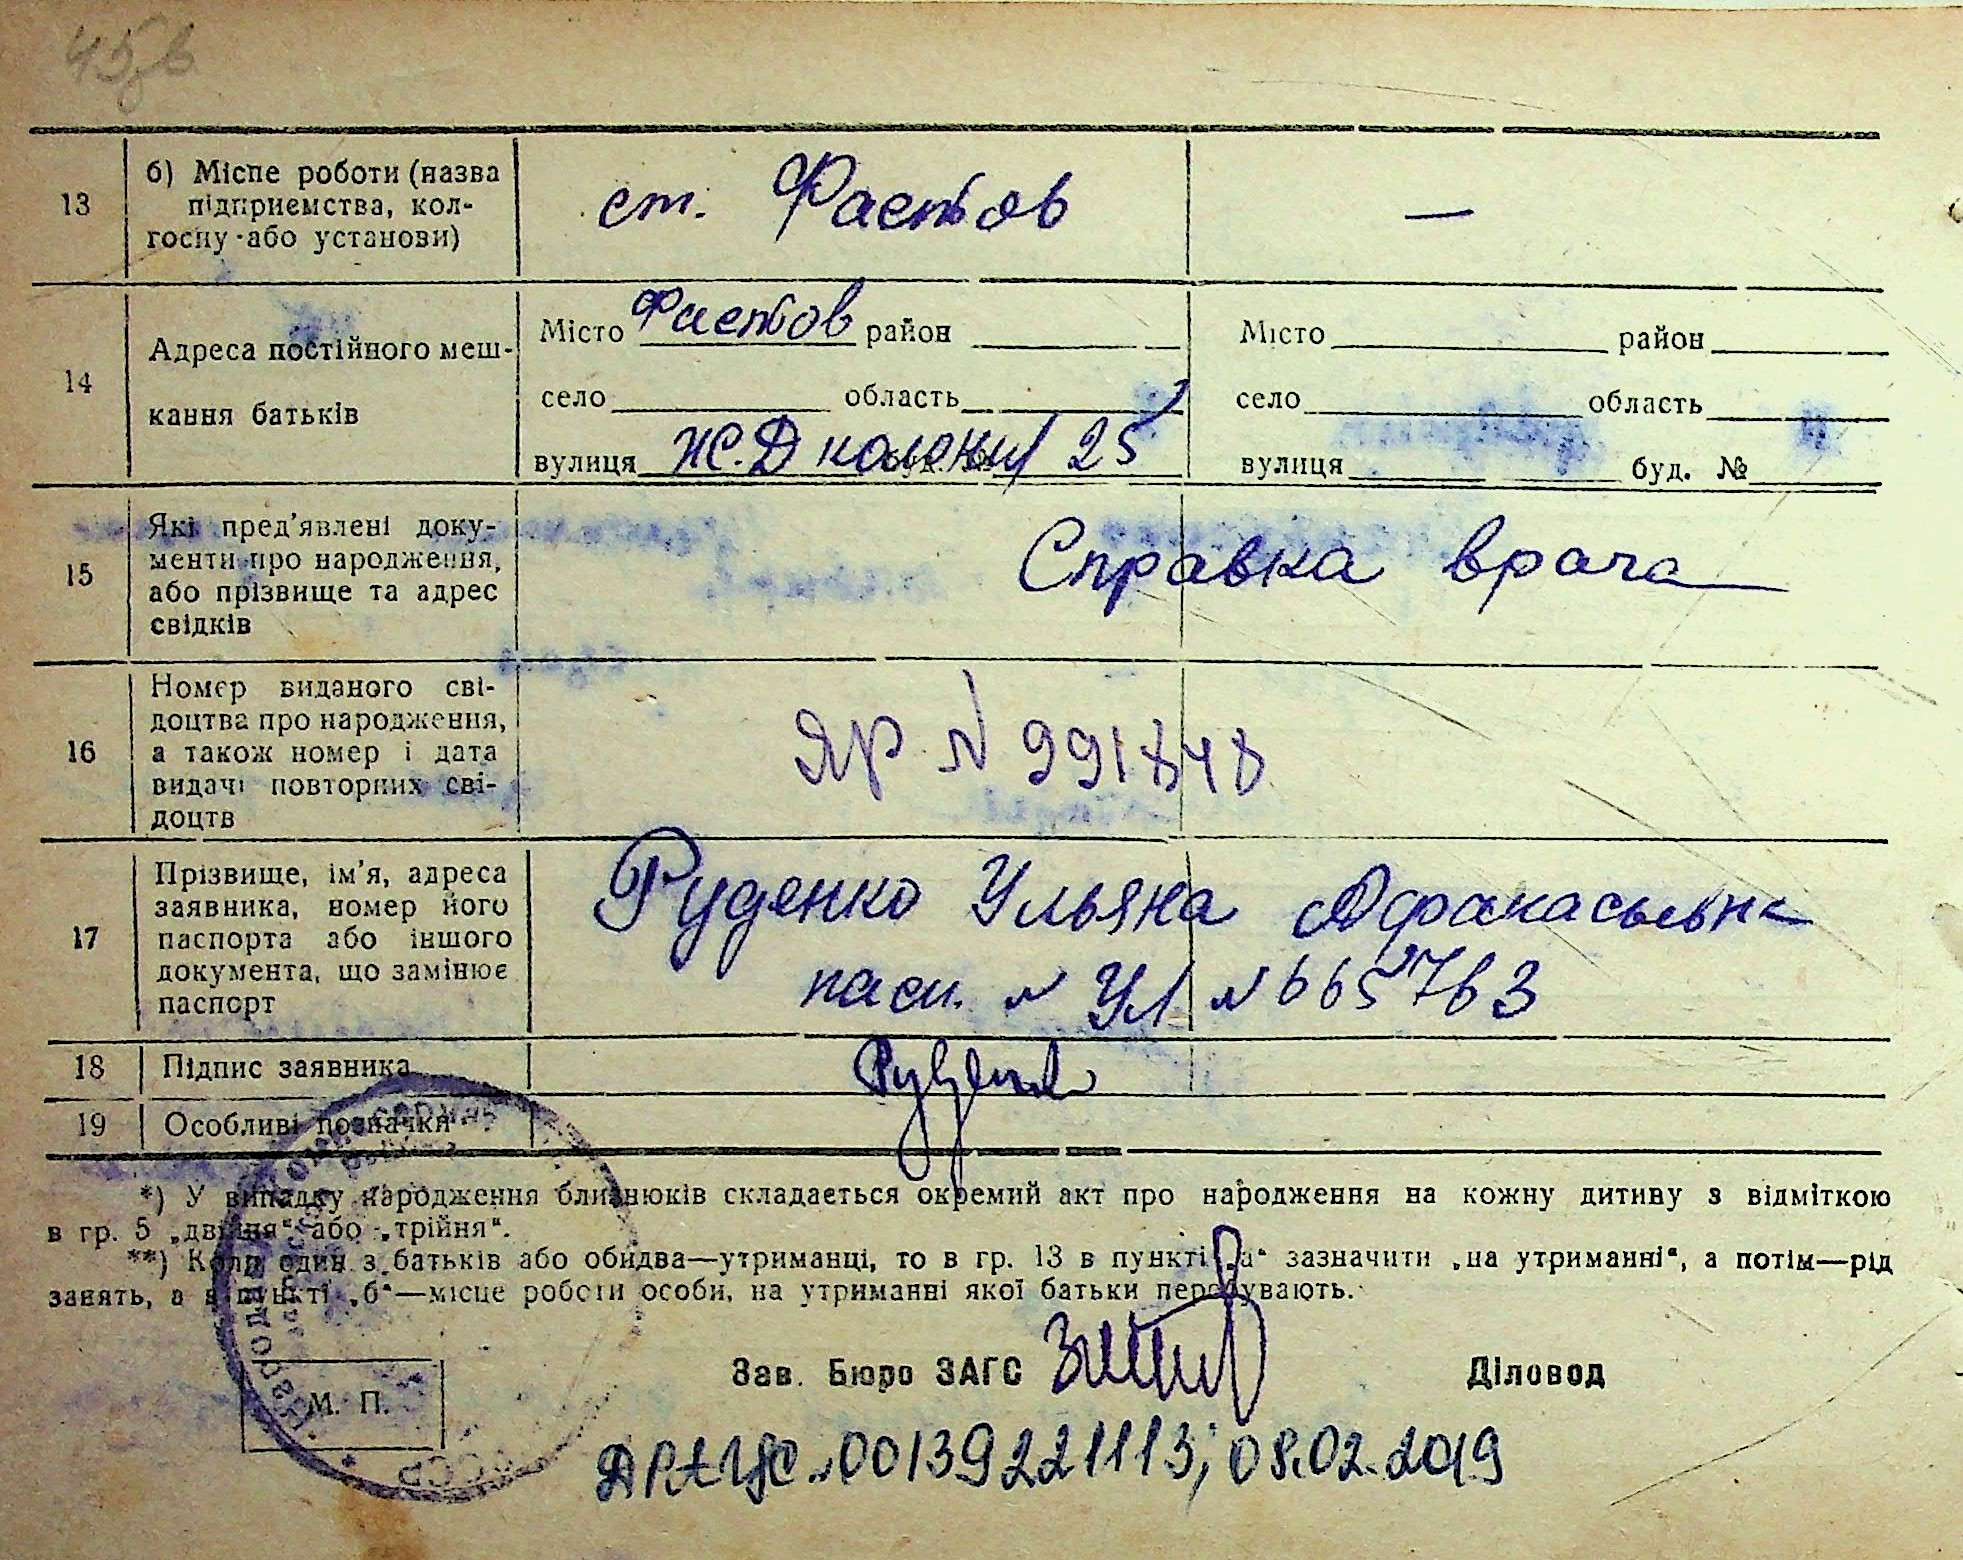 13
б) Місце роботи (назва
підприємства, кол-
госпу або установи)
ст. Фастов
—
14
Адреса постійного меш-
кання батьків
Місто Фастов район
село область
вулиця Ж.Д колония 25
Місто район
село область
вулиця буд. №
15
Які пред'явлені доку-
менти про народження,
або прізвище та адрес
свідків
Справка врача
16
Номер виданого сві-
доцтва про народження,
а також номер і дата
видачі повторних сві-
доцтв
ЯР N 991848
17
Прізвище, ім'я, адреса
заявника, номер його
паспорта або іншого
документа, що замінює
паспорт
Руденко Ульяна
пасп. N УЛ N 665763
18
Підпис заявника
Руденко
19
Особливі позначки
*) У випадку народження близнюків складається окремий акт про народження на кожну дитину з відміткою
в гр. 5 „двійня“ або „трійня“.
**) Коли один з батьків або обидва—утриманці, то в гр. 13 в пункті „а“ зазначити „на утриманні“, а потім—рід
занять, а в пункті „б“—місце роботи особи, на утриманні якої батьки перебувають.
Зав. Бюро ЗАГС
Діловод
М. П.
ДРАЦС N00139221113; 08.02.2019